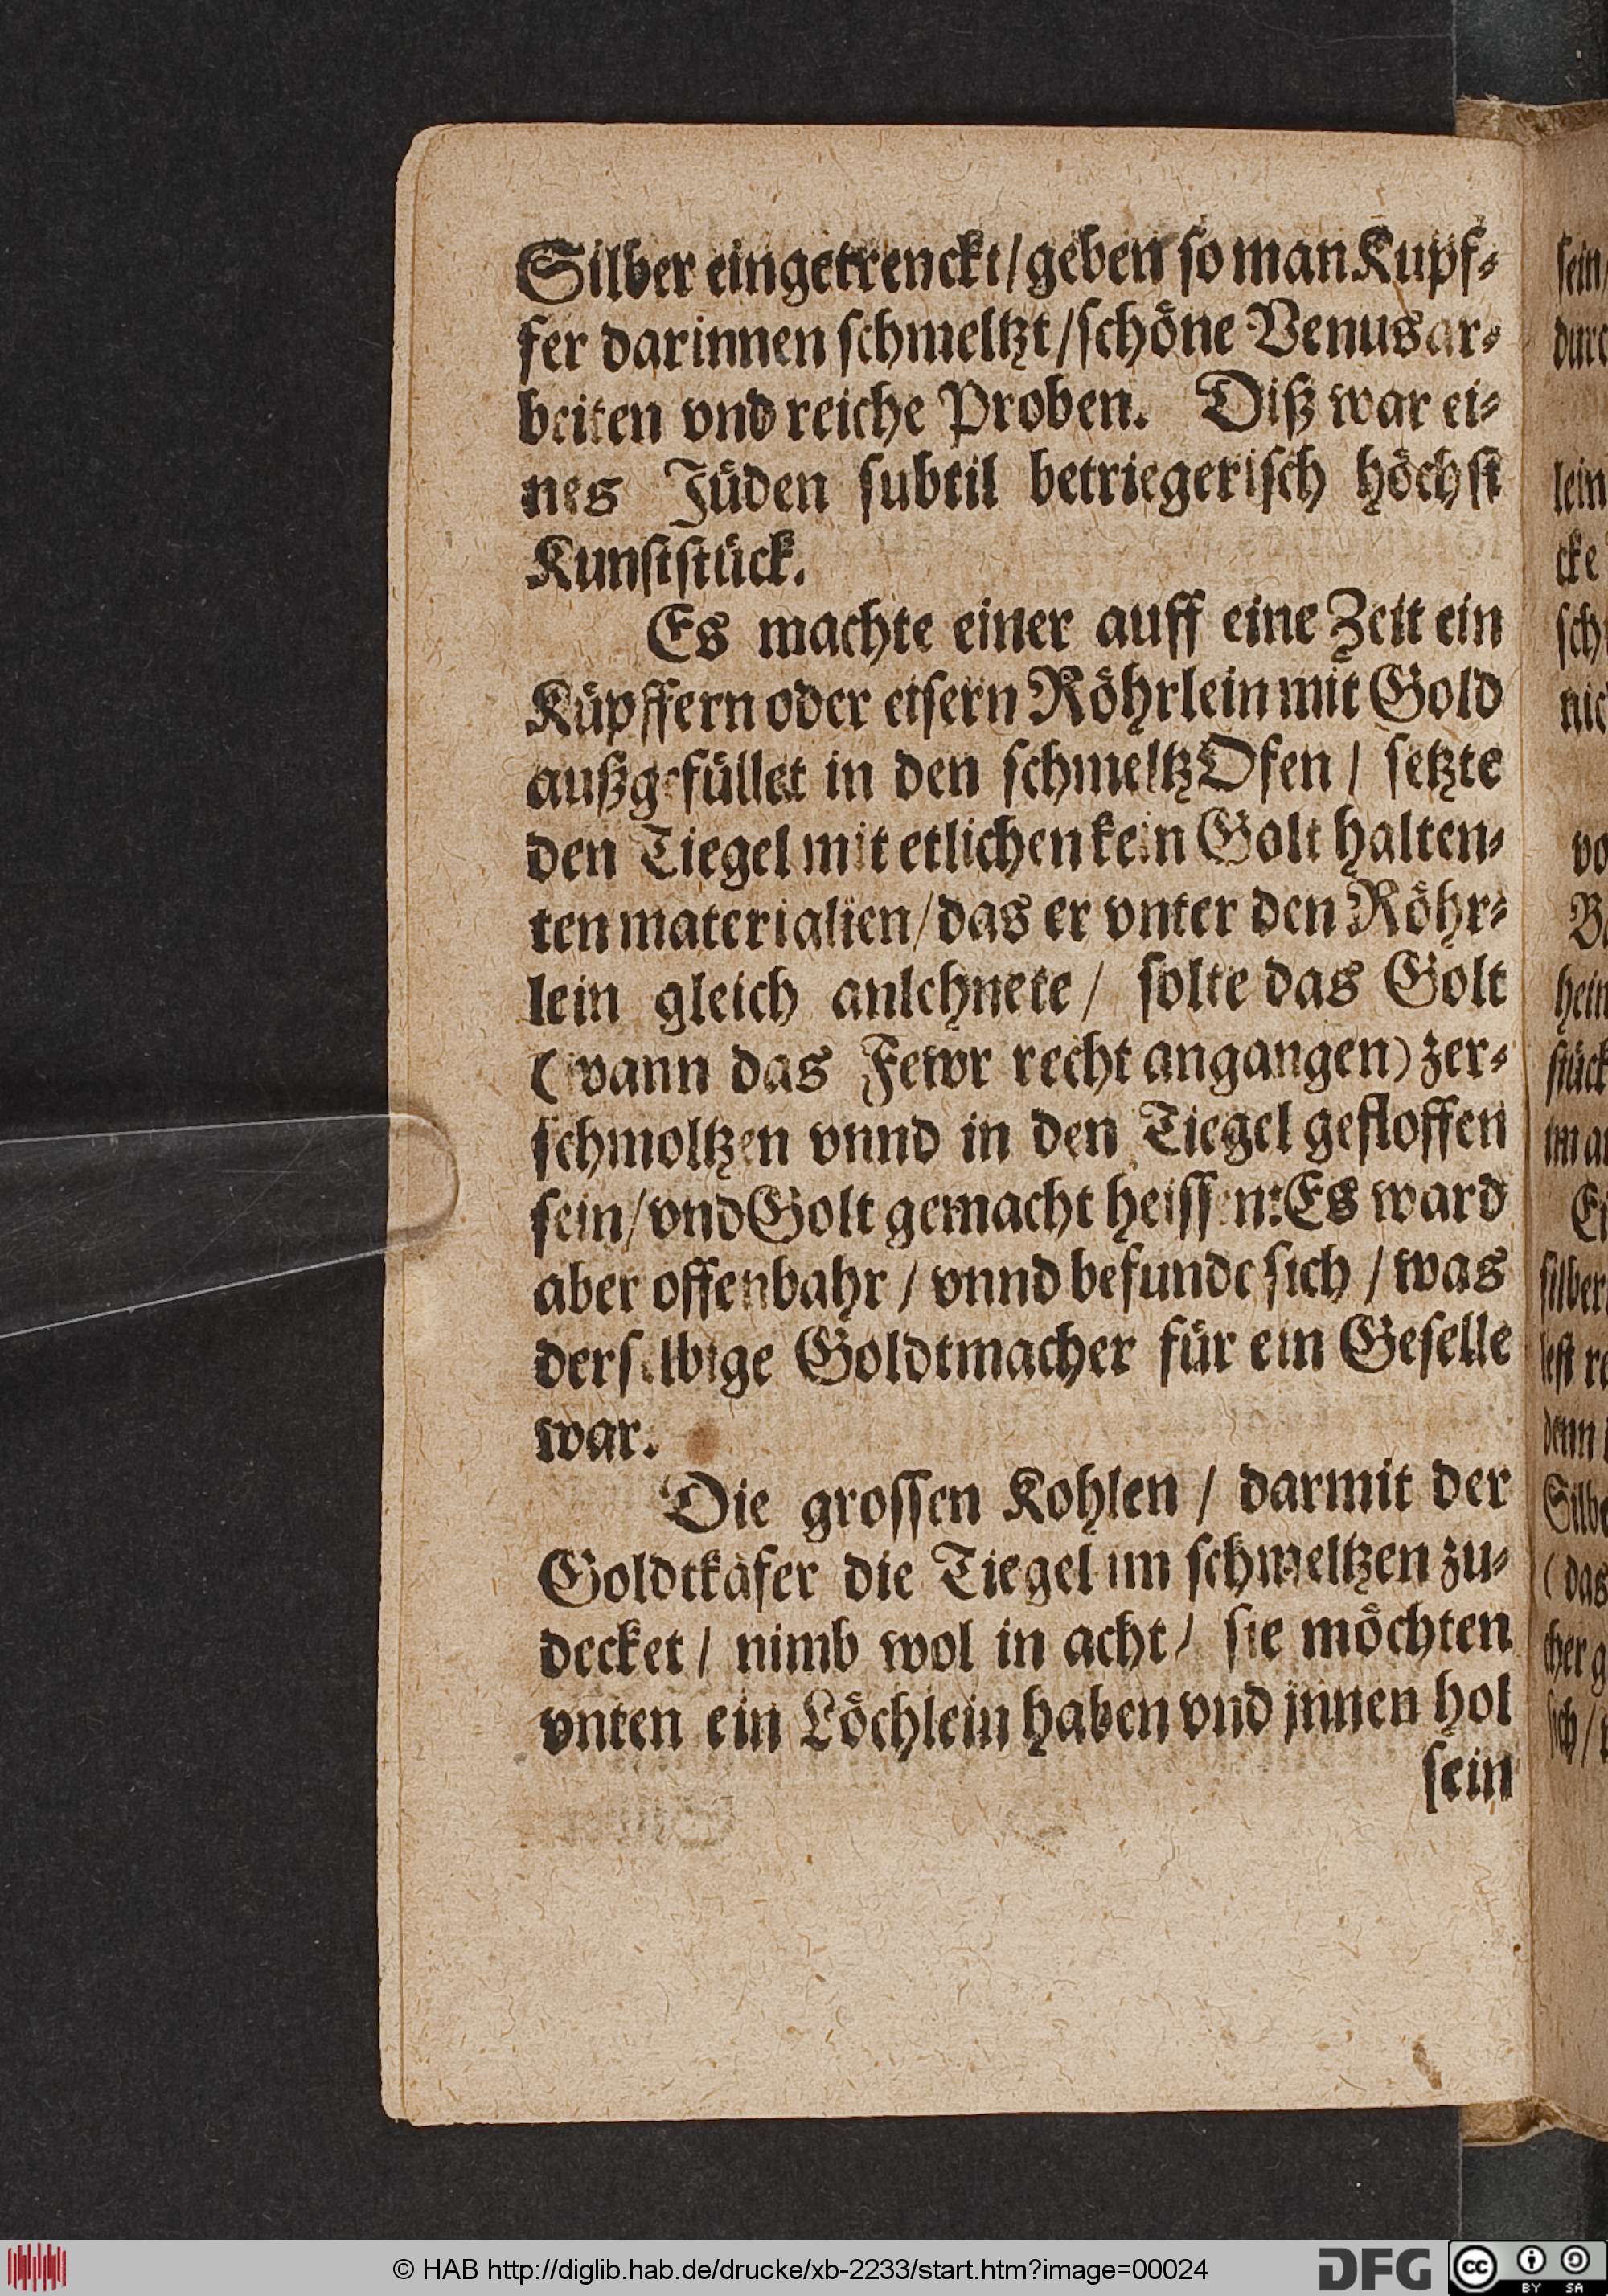 Silber eingetrenckt/geben so man Kupf-
fer darinnen schmeltzt/schöne Venus ar-
beiten vnd reiche Proben. Diß war ei-
nes Jüden subtil betriegerisch höchst
Kunststück.
Es machte einer auff eine Zeit ein
Küpffern oder eisern Röhrlein mit Gold
außgefüllet in den schmeltzOfen / setzte
den Tiegel mit etlichen kein Golt halten-
ten materialien/das er vnter den Röhr-
lein gleich anlehnete / solte das Golt
(wann das Fewr recht angangen) zer-
schmoltzen vnnd in den Tiegel geflossen
sein/vnd Golt gemacht heissen: Es ward
aber offenbahr / vnnd befunde sich / was
derselbige Goldtmacher für ein Geselle
war.
Die grossen Kohlen / darmit der
Goldtkäfer die Tiegel im schmeltzen zu-
decket / nimb wol in acht / sie möchten
vnten ein Löchlein haben vnd jnnen hol
sein
sein/
durc
lein
cke
sch
nic
vo
hein
stück
im an
Ei
silber
lest re
denn
Silbe
( das
cher g
sich /
© HAB http://diglib.hab.de/drucke/xb-2233/start.htm?image=00024
DFG
cc
BY SA